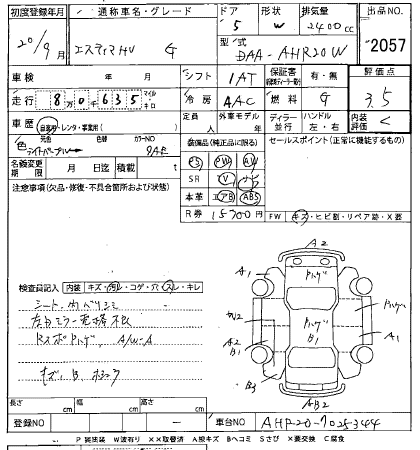 初度登録年月 通称車名・グレード ドア 形状 排気量 出品NO.
20/9月 エスティマHV G 5 W 2400cc
型式 DAA-AHR20W 2057
車検 年 月 シフト IAT 保証書 有・無 評価点
走行 8万0千635 マイル キロ 冷房 AAC 燃料 G 3.5
車歴 自家用・レンタ・事業用( ) 定員 人 外車モデル 年 ディーラー 並行 ハンドル 左・右 内装評価 C
色 元色 色替 カラーNO
ライトパープル 9AE
装備品(純正品に限る) セールスポイント(正常に機能するもの)
PS PW AW
名義変更期限 月 日迄 積載 t
SR V ナビ
注意事項(欠品・修復・不具合箇所および状態)
本革 エアB ABS
R券 15700円 FW キズ・ヒビ割・リペア跡・X要
検査員記入 内装 キズ・汚レ・コゲ・穴・スレ・キレ
シート、内バリシミ
キズ、B
A2
A1
A2
B1
B3
ハゲ
B1
A1
AB2
長さ cm 幅 cm 高さ cm
登録NO - 車台NO AHR20-7025344
P 要塗装 W波有り XX取替済 A線キズ Bヘコミ Sさび X要交換 C腐食